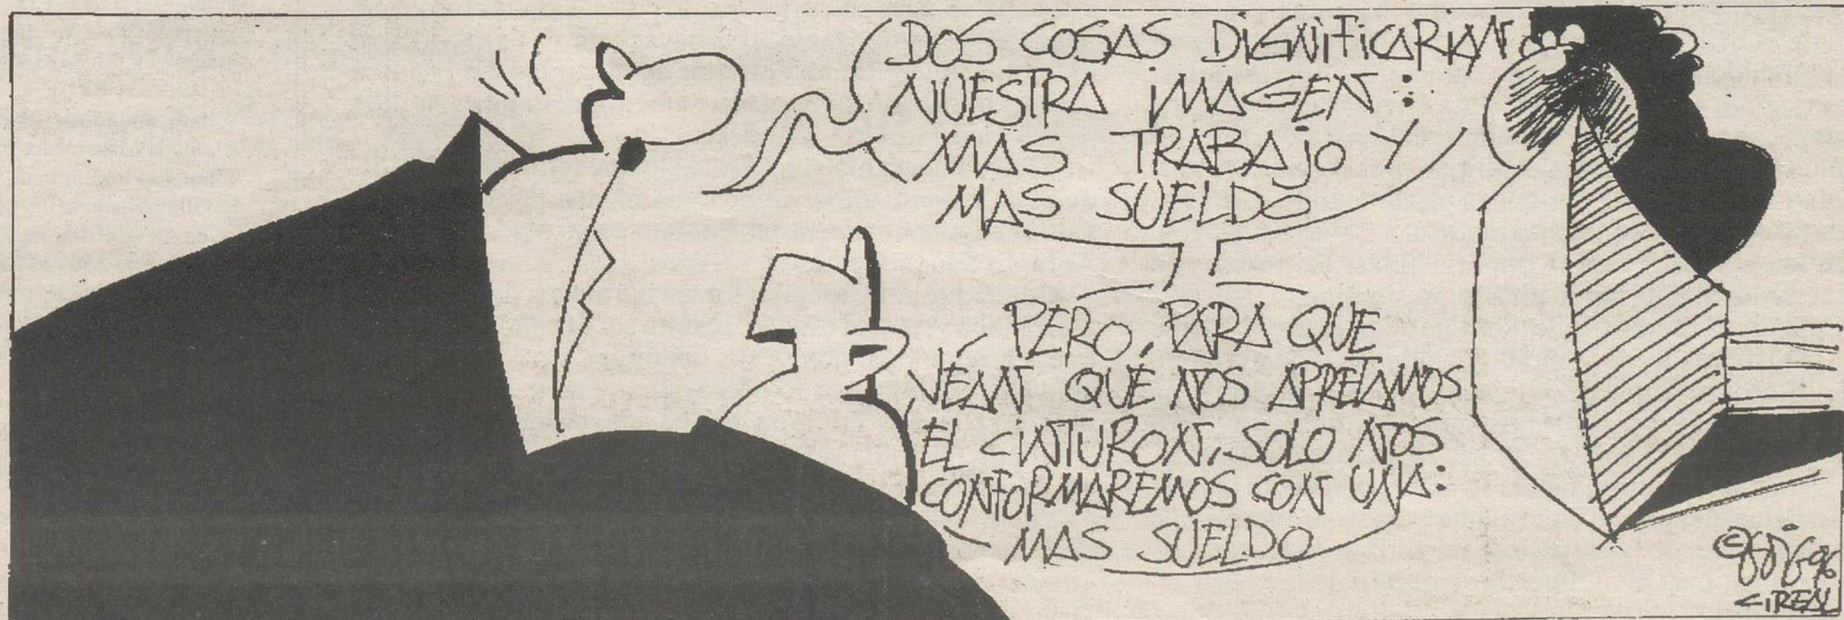 DOS COSAS DIGNIFICARIAN
NUESTRA IMAGEN:
MAS TRABAJO Y
MAS SUELDO
PERO, PARA QUE
VEAN QUE NOS APRETAMOS
EL CINTURON, SOLO NOS
CONFORMAREMOS CON UNA:
MAS SUELDO
©
96
C.REAL